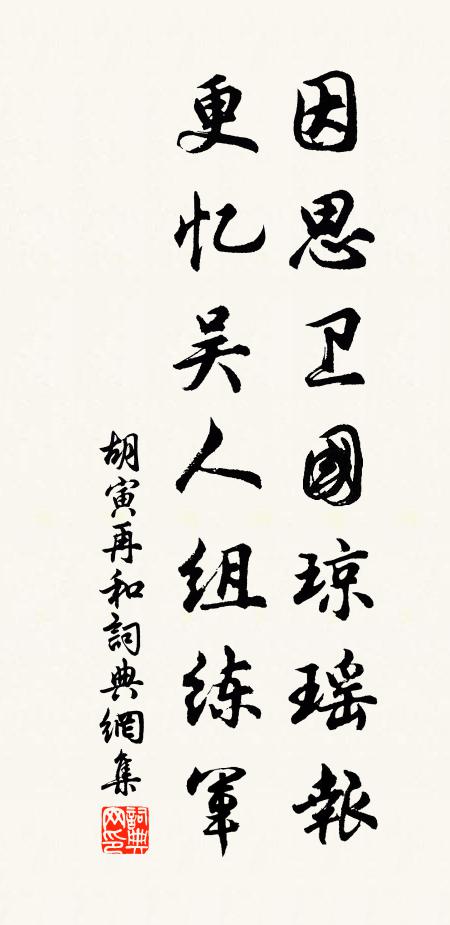 因思卫國琼瑶報
更忆吴人组练军
胡寅再和詞典網集
詞典网印